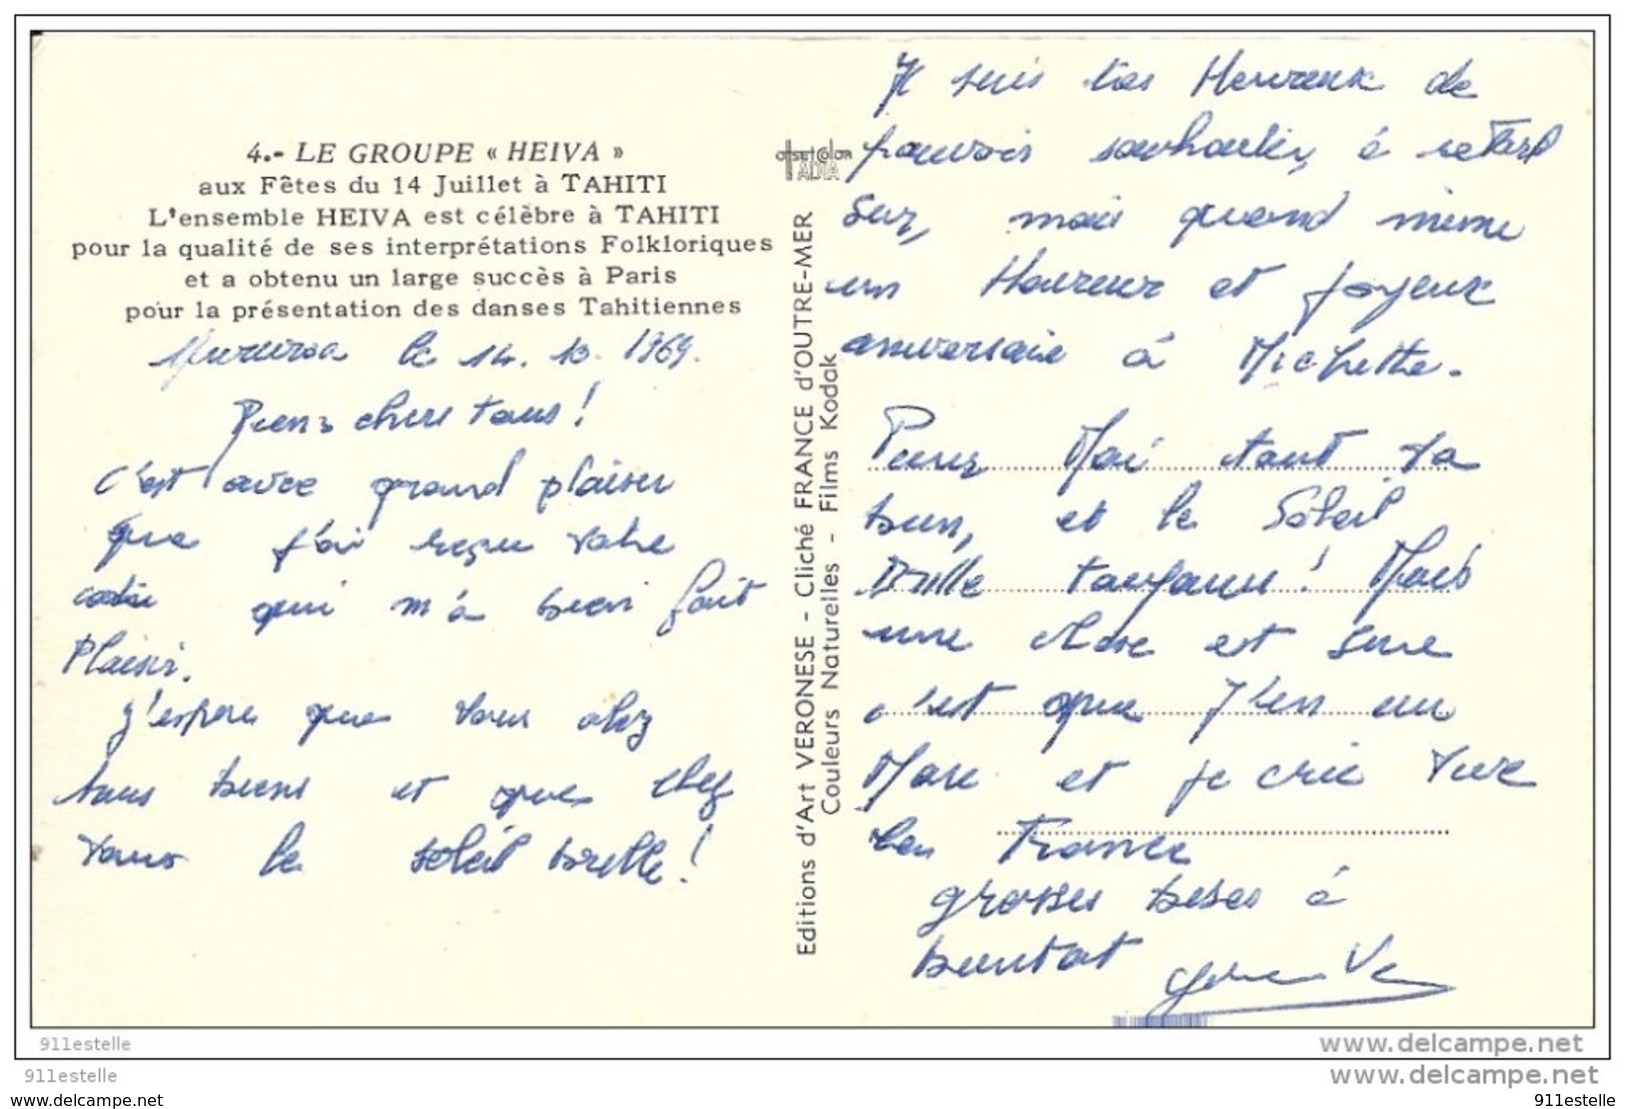 4.- LE GROUPE « HEIVA »
aux Fêtes du 14 Juillet à TAHITI
L'ensemble HEIVA est célèbre à TAHITI
pour la qualité de ses interprétations Folkloriques
et a obtenu un large succès à Paris
pour la présentation des danses Tahitiennes
Mururoa le 14. 10. 1969.
Biens chers tous!
C'est avec grand plaisir
que j'ai reçu votre
qui m'a bien fait
Plaisir.
J'espère que vous alez
tous biens et que chez
vous le soleil brille!
offset color
IADIA
Editions d'Art VERONESE - Cliché FRANCE d'OUTRE-MER
Couleurs Naturelles - Films Kodak
Je suis tres Heureux de
pouvoir souhaiter, à retard
sur, mais quand même
un Heureux et joyeux
aniversaire à Michette.
Pour Moi tout va
bien, et le Soleil
Brille toujours! Mais
une chose est sure
c'est que J'en eu
Mare et je crie Vive
la France
grosses bises à
bientot
911estelle
www.delcampe.net
911estelle
www.delcampe.net
www.delcampe.net
911estelle